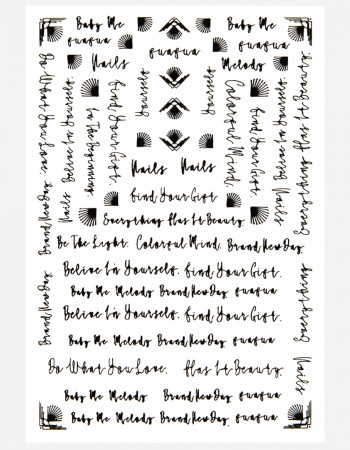 Baby Me
guagua
guagua
Nails
Melody
Do What You Love.
Believe In Yourself.
Nails
In The Beginning
Find Your Gift.
Yourself
Yourself
Colorful Mind.
Find Your Gift.
Believe In Yourself.
Nails
Everything Has It Beauty.
Brand New Day
Nails Nails
Find Your Gift
Everything Has It Beauty
Be The Light. Colorful Mind. Brand New Day
Believe In Yourself. Find Your Gift.
Baby Me Melody Brand New Day guagua
Believe In Yourself. Find Your Gift.
Baby Me Melody Brand New Day guagua
Brand New Day
Everything
Nails
Do What You Love. Has It Beauty.
Baby Me Melody Brand New Day guagua
Baby Me Melody Brand New Day guagua